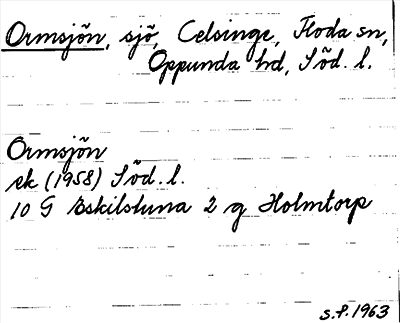 Ormsjön, sjö, Celsinge, Floda sn,
Oppunda hd, Söd. l.
Ormsjön
ek (1958) Söd. l.
10 G Eskilstuna 2 g Holmtorp
s.f. 1963